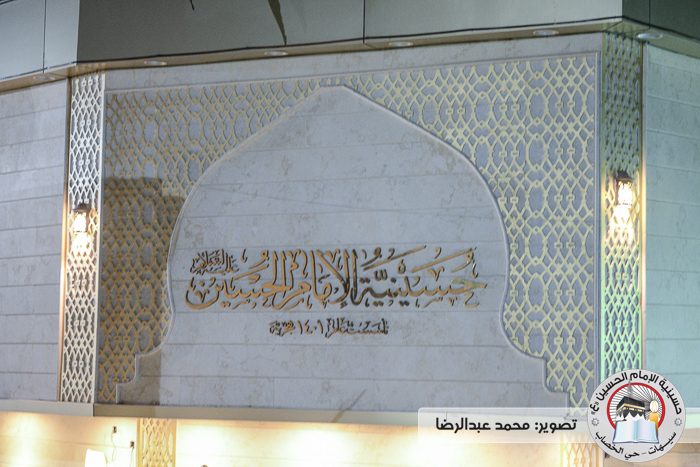 حسينية الإمام الحسين
عليه السلام
تأسست عام ١٤٠١ هجرية
تصوير: محمد عبدالرضا
حسينية الإمام الحسين (ع)
سيهات - حي الخصاب